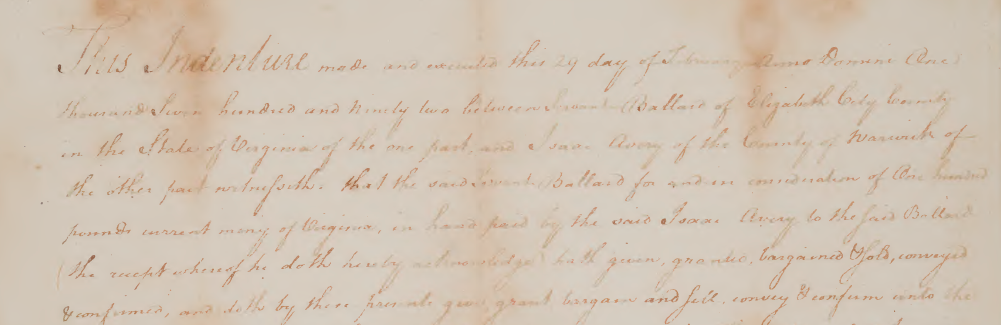 This Indenture made and executed this 29 day of February Anno Domini One
thousand Seven hundred and Ninety two between Servant Ballard of Elizabeth City County
in the State of Virginia of the one part, and Isaac Avery of the County of Warwick of
the other part witnesseth. that the said Servant Ballard for and in consideration of One hundred
pounds current money of Virginia, in hand paid by the said Isaac Avery to the said Ballard
(the receipt whereof he doth hereby acknowledge) hath given, granted, bargained & Sold, conveyed
& confirmed, and doth by these presents give grant bargain and sell, convey & confirm unto the